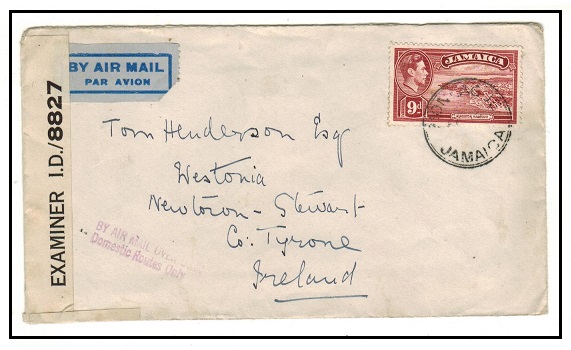 BY AIR MAIL
PAR AVION
JAMAICA
9D
JAMAICA
EXAMINER I.D./8827
Tom Henderson Esq
Westonia
Newtown-Stewart
Co: Tyrone
Ireland
BY AIR MAIL OVER
Domestic Routes Only